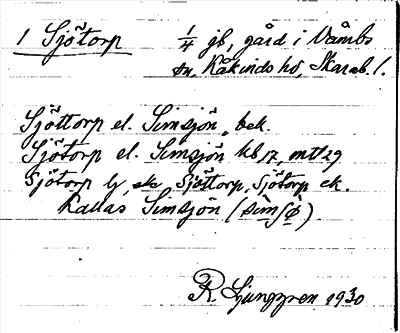 1 Sjötorp 1/4 jb, gård i Våmbs
sn. Kåkinds hd, Skarab. l.
Sjöttorp el. Simsjön, bek.
Sjötorp el. Simsjön kb 17, mtl 29
Sjötorp lj, eks Sjöttorp, Sjötorp ek.
Kallas Simsjön (
R Ljunggren 1930